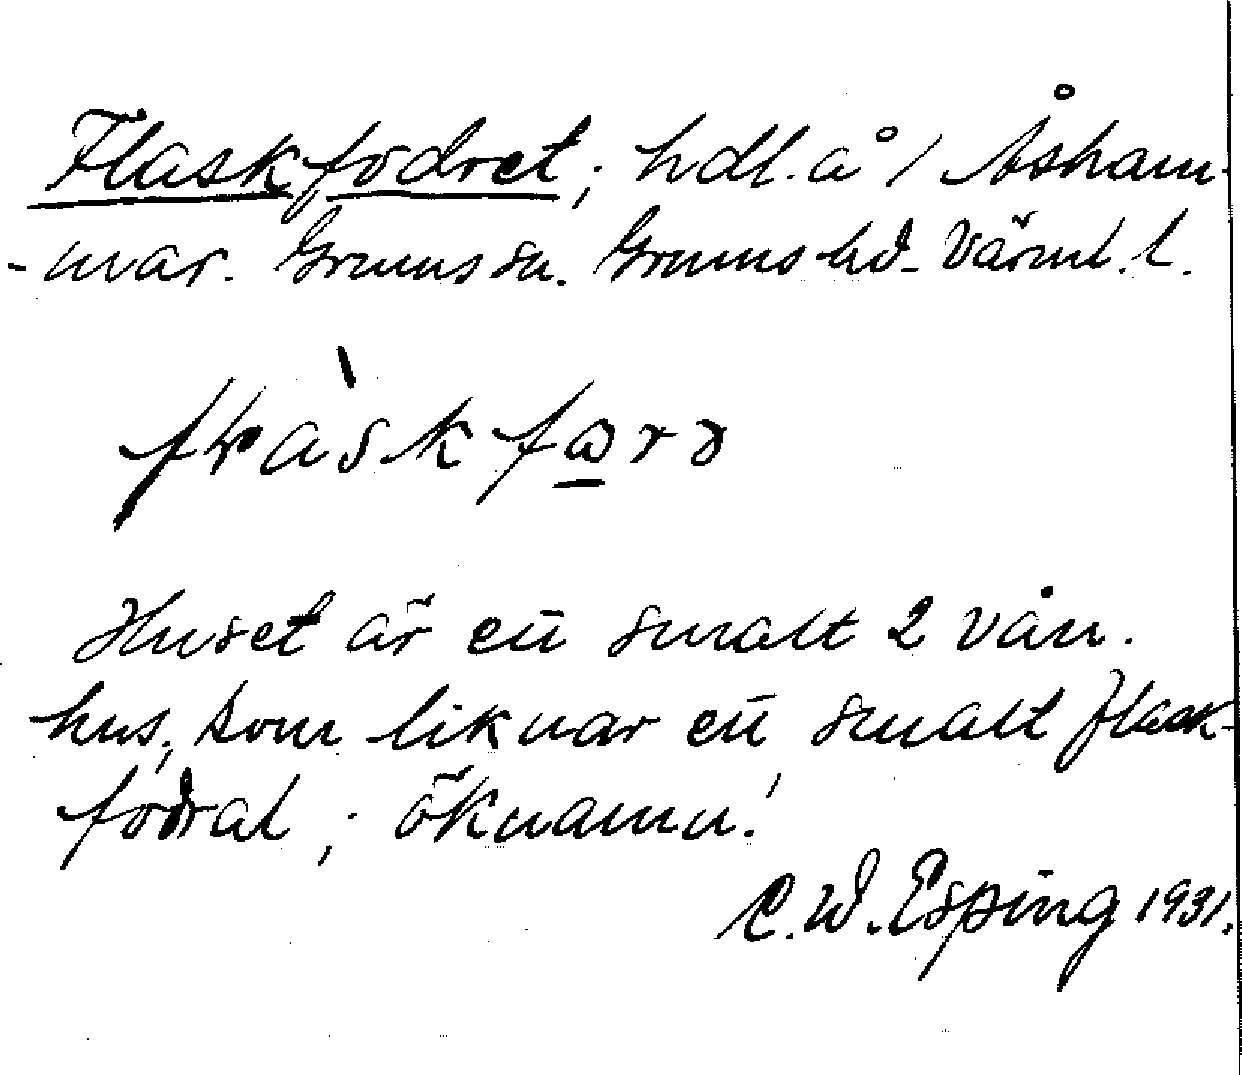 Flaskfodret; hdl. å 1 Åsham-
-mar. Grums sn. Grums hd. Värml. l.
flàskfɷrə
Huset är eū smalt 2 vån.
hus, som liknar eū smalt flask-
fodral; öknamn!
C. W. Esping 1931.